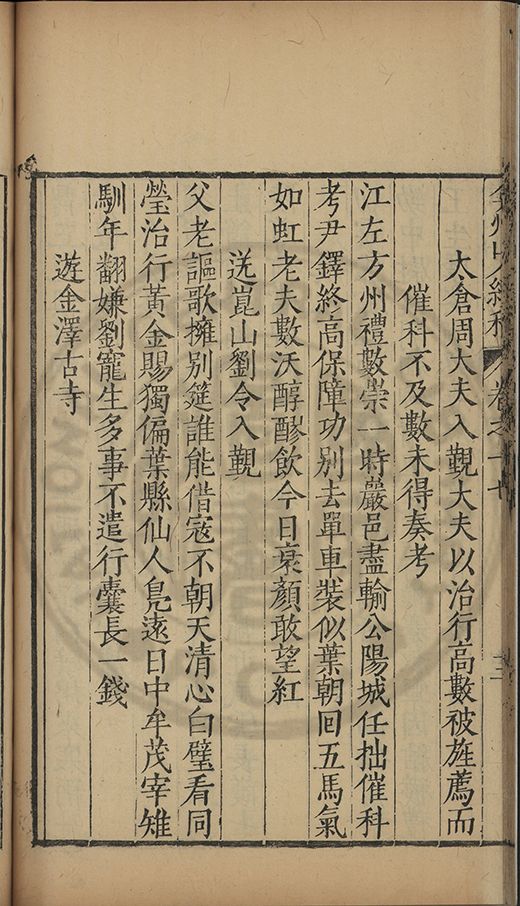 太倉周大夫入覲大夫以治行高數被旌薦而
催科不及數未得奏考
江左方州禮數崇一時嚴邑盡輸公陽城任拙催科
考尹鐸終高保障功別去單車裝似葉朝回五馬氣
如虹老夫數沃醇醪飲今日衰顏敢望紅
送崑山劉令入覲
父老謳歌擁別筵誰能借寇不朝天清心白璧看同
瑩治行黃金賜獨偏葉縣仙人鳧遠日中牟茂宰雉
馴年翻嫌劉寵生多事不遣行囊長一錢
遊金澤古寺